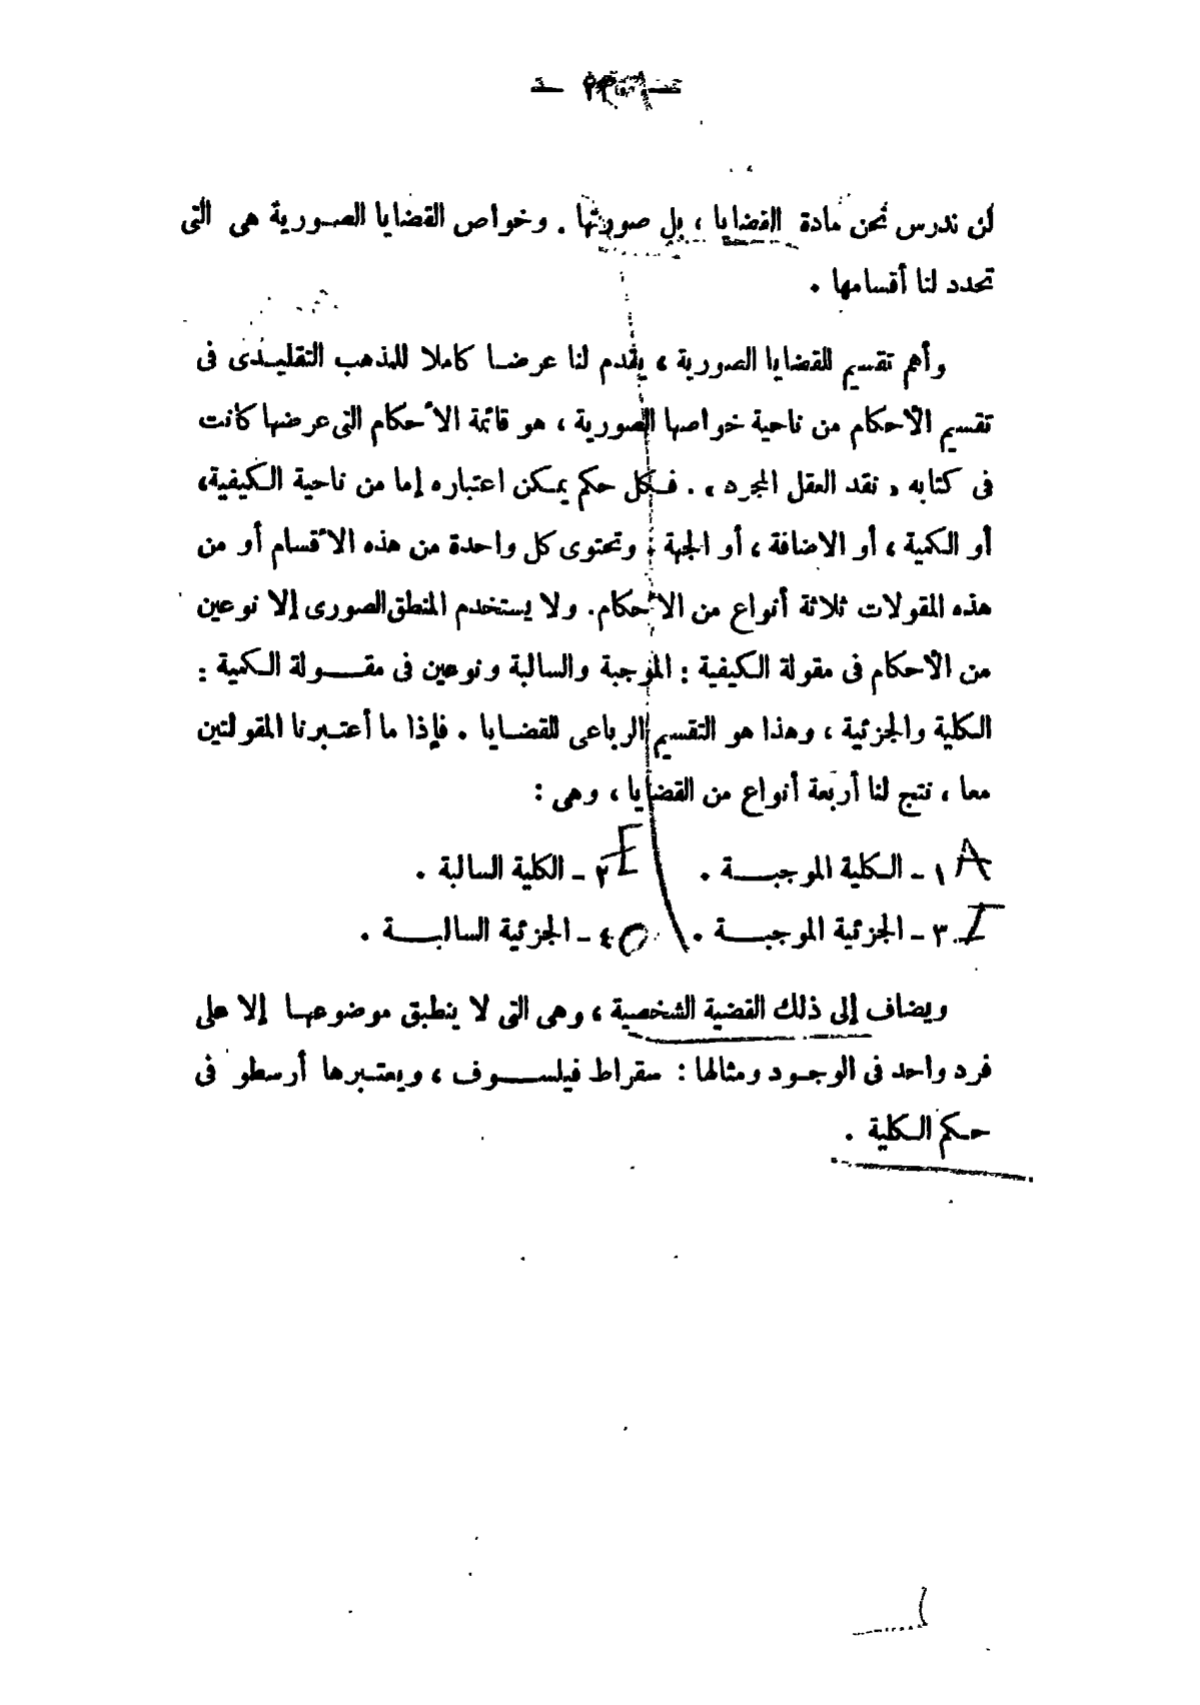 لن ندرس نحن مادة القضايا ، بل صورتها . وخواص القضايا الصورية هى التى
تحدد لنا أقسامها .
وأهم تقسيم للقضايا الصورية ، يقدم لنا عرضا كاملا للمذهب التقليدى فى
تقسيم الأحكام من ناحية خواصها الصورية ، هو قائمة الأحكام التى عرضها كانت
فى كتابه « نقد العقل المجرد » . فكل حكم يمكن اعتباره إما من ناحية الكيفية،
أو الكمية ، أو الاضافة ، أو الجهة . وتحتوى كل واحدة من هذه الأقسام أو من
هذه المقولات ثلاثة أنواع من الأحكام. ولا يستخدم المنطق الصورى إلا نوعين
من الأحكام فى مقولة الكيفية : الموجبة والسالبة ونوعين فى مقولة الكمية :
الكلية والجزئية ، وهذا هو التقسيم الرباعى للقضايا . فإذا ما أعتبرنا المقولتين
معا ، نتج لنا أربعة أنواع من القضايا ، وهى :
A ١ - الكلية الموجبة . E ٢ - الكلية السالبة .
I ٣ - الجزئية الموجبة . O ٤ - الجزئية السالبة .
ويضاف إلى ذلك القضية الشخصية ، وهى التى لا ينطبق موضوعها إلا على
فرد واحد فى الوجود ومثالها : سقراط فيلسوف ، ويعتبرها أرسطو فى
حكم الكلية .